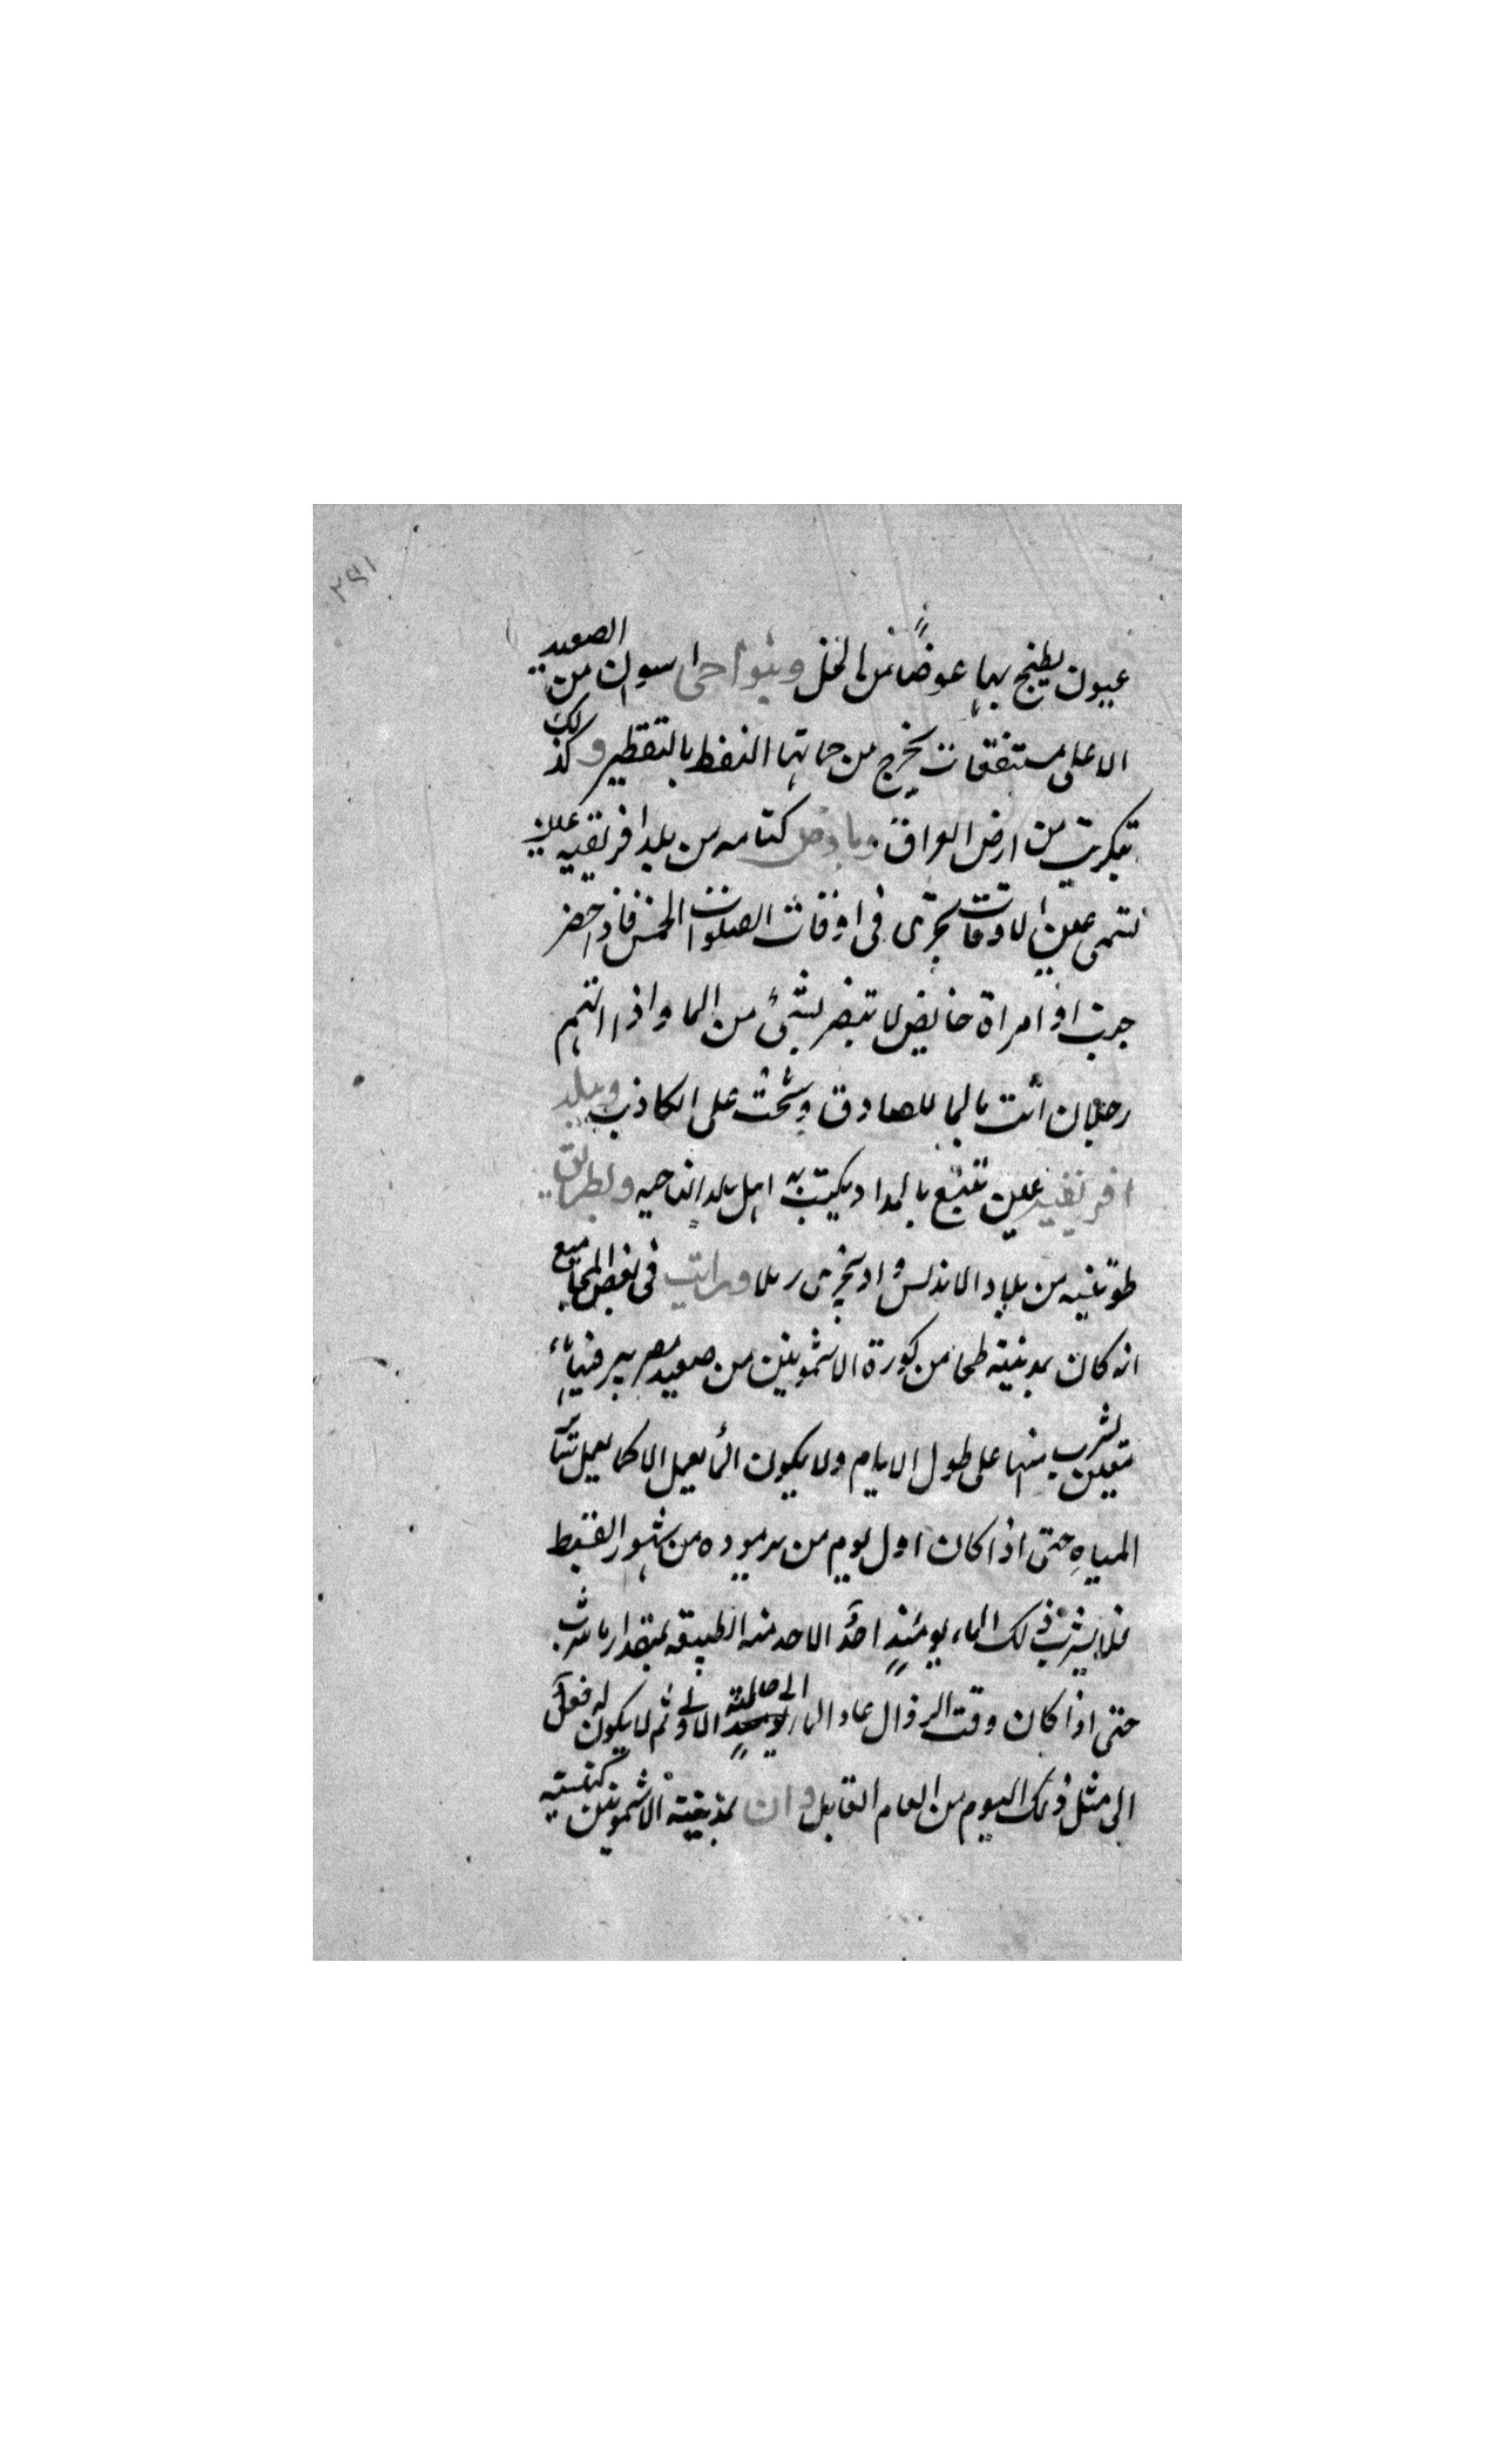 ٢٩١
عيون يطبخ بها عوضًا من الخل وبنواحى اسوان من الصعيد
الاعلى مستنقعات يخرج من حماتها النفط بالتقطير وكذلك
بتكريت من ارض العراق وبارض كتامه من بلد افريقيه عين
تسمى عين الاوقات تجرى فى اوقات الصلوات الخمس فاذا حضر
جنب او امراة حايض لا تبض بشئ من الما واذا اتهم
رجلان اتت بالما للصادق وشحت على الكاذب وببلد
افريقيه عين تنبع بالمداد يكتب به اهل تلك الناحيه وبطريق
من بلاد الاندلس واد يجرى رملا ورايت فى بعض المجاميع
انه كان بمدينة طحا من كورة الاشمونين من صعيد مصر بير فيها ماء
معين يشرب منها على طول الايام ولا يكون الما يعمل الا كما يعمل سائر
المياه حتى اذا كان اول يوم من برموده من شهور القبط
فلا يشرب ذلك الماء يومئذٍ احدٌ الا احد منه الطبيعه بمقدار ما شرب
حتى اذا كان وقت الزوال عاد الما الى حالته الاولى ثم لا يكون له فعل
الى مثل ذلك اليوم من العام القابل وان بمدينة الاشمونين كنيسة